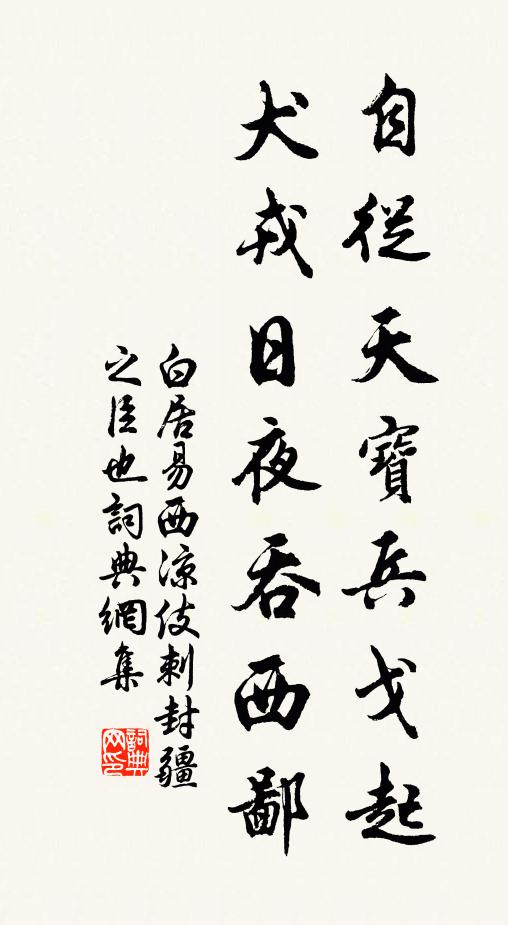 自從天寶兵戈起
犬戎日夜吞西鄙
白居易西涼伎刺封疆
之臣也詞典網集
詞典網印